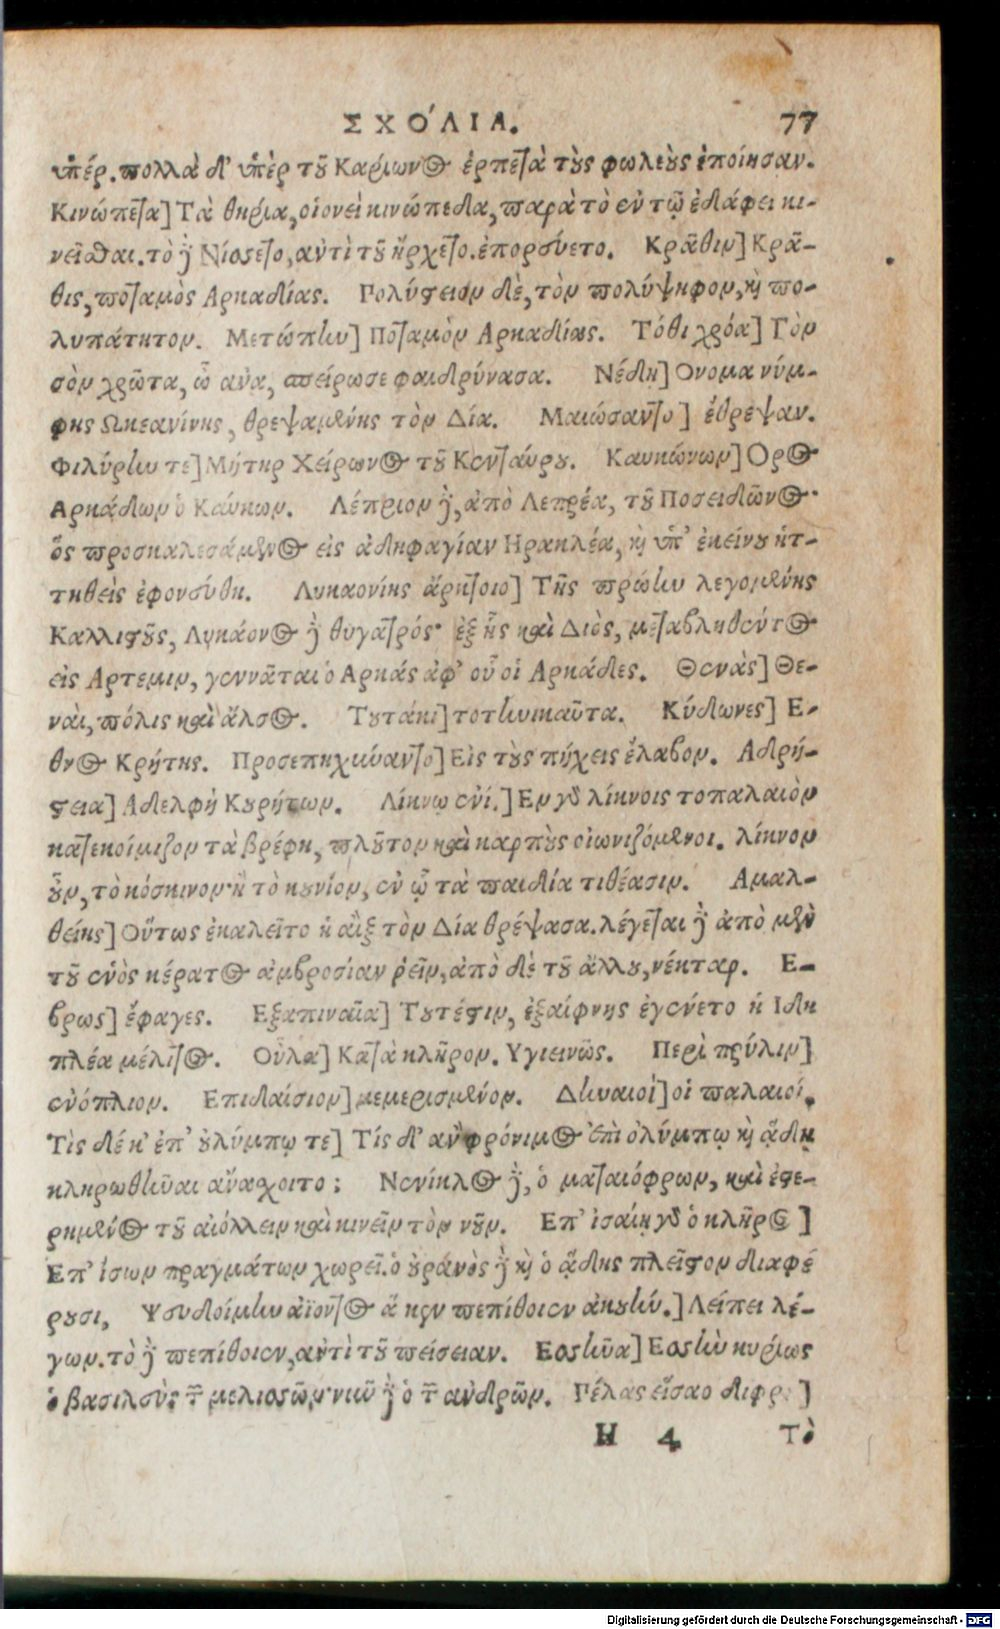 ΣΧΟ´ΛΙΑ. 77
ὑπέρ. πολλὰ δ' ὑπὲρ τοῦ Καρίωνος ἑρπετὰ τοὺς φωλεοὺς ἐποίησαν.
Κινώπετα] Τὰ θηρία, οἱονεὶ κινώπεδα, παρὰ τὸ ἐν τῷ ἐδάφει κι-
νεῖσθαι. τὸ δὲ Νίοσετο, αὐτὶ τοῦ ἤρχετο. ἐπορεύετο. Κρᾶθιν] Κρᾶ-
θις, ποταμὸς Αρκαδίας. Πολύστειον δὲ, τὸν πολύψηφον, καὶ πο-
λυπάτητον. Μετώπην] Ποταμὸν Αρκαδίας. Τόθι χρόα] Τὸν
σὸν χρῶτα, ὦ ἄνα, ἀπείρωσε φαιδρύνασα. Νέδη] Ονομα νύμ-
φης Ωκεανίνης, θρεψαμένης τὸν Δία. Μαιώσαντο] ἔθρεψαν.
Φιλύρην τε] Μήτηρ Χείρωνος τοῦ Κενταύρου. Καυκώνων] Ορος
Αρκάδων ὁ Καύκων. Λέπριον δὲ, ἀπὸ Λεπρέα, τοῦ Ποσειδῶνος·
ὅς προσκαλεσάμενος εἰς ἀδηφαγίαν Ηρακλέα, καὶ ὑπ' ἐκείνου ἡτ-
τηθεὶς ἐφονεύθη. Λυκαονίης ἄρκτοιο] Τῆς πρώην λεγομένης
Καλλιστοῦς, Λυκάονος δὲ θυγατρός· ἐξ ἧς καὶ Διὸς, μεταβληθέντος
εἰς Αρτεμιν, γεννᾶται ὁ Αρκάς ἀφ' οὗ οἱ Αρκάδες. Θενὰς] Θε-
ναὶ, πόλις καὶ ἄλσος. Τουτάκι] τοτηνικαῦτα. Κύδωνες] Ε-
θνος Κρήτης. Προσεπηχύναντο] Εἰς τοὺς πήχεις ἔλαβον. Αδρή-
στεια] Αδελφὴ Κουρήτων. Λίκνῳ ἐνί.] Εν γὰρ λίκνοις τοπαλαιὸν
κατεκοίμιζον τὰ βρέφη, πλοῦτον καὶ καρποὺς οἰωνιζόμενοι. λίκνον
οὖν, τὸ κόσκινον· ἢ τὸ κουνίον, ἐν ᾧ τὰ παιδία τιθέασιν. Αμαλ-
θείης] Οὕτως ἐκαλεῖτο ἡ αἲξ τὸν Δία θρέψασα. λέγεται δὲ ἀπὸ μὲν
τοῦ ἑνὸς κέρατος ἀμβροσίαν ῥεῖν, ἀπὸ δὲ τοῦ ἄλλου, νέκταρ. Ε-
βρως] ἔφαγες. Εξαπιναῖα] Τουτέστιν, ἐξαίφνης ἐγένετο ἡ Ιδη
πλέα μέλιτος. Οὖλα] Κατὰ κλῆρον. Υγιεινῶς. Περὶ πρύλιν]
ἐνόπλιον. Επιδαίσιον] μεμερισμένον. Δηναιοὶ] οἱ παλαιοί.
Τὶς δέ κ' ἐπ' οὐλύμπῳ τε] Τίς δ' ἂν φρόνιμος ἐπὶ ὀλύμπῳ καὶ ᾅδῃ
κληρωθῆναι ἄναχοιτο; Νενίηλος δὲ, ὁ ματαιόφρων, καὶ ἐστε-
ρημένος τοῦ αἰόλλειν καὶ κινεῖν τὸν νοῦν. Επ' ἰσαίῃ γὰρ ὁ κλῆρος]
Επ' ἴσων πραγμάτων χωρεῖ. ὁ οὐρανὸς δὲ καὶ ὁ ᾅδης πλεῖστον διαφέ
ρουσι, Ψευδοίμην ἀϊοντος ἅ κεν πεπίθοιεν ἀκουήν.] Λείπει λέ-
γων. τὸ δὲ πεπίθοιεν, αὐτὶ τοῦ πείσειαν. Εοσῆνα] Εοσὴν κυρίως
ὁ βασιλεὺς τῶν μελισσῶν· νῦν δὲ ὁ τῶν ἀνδρῶν. Πέλας εἵσαο δίφρ ]
H 4 Τὸ
Digitalisierung gefördert durch die Deutsche Forschungsgemeinschaft - DFG